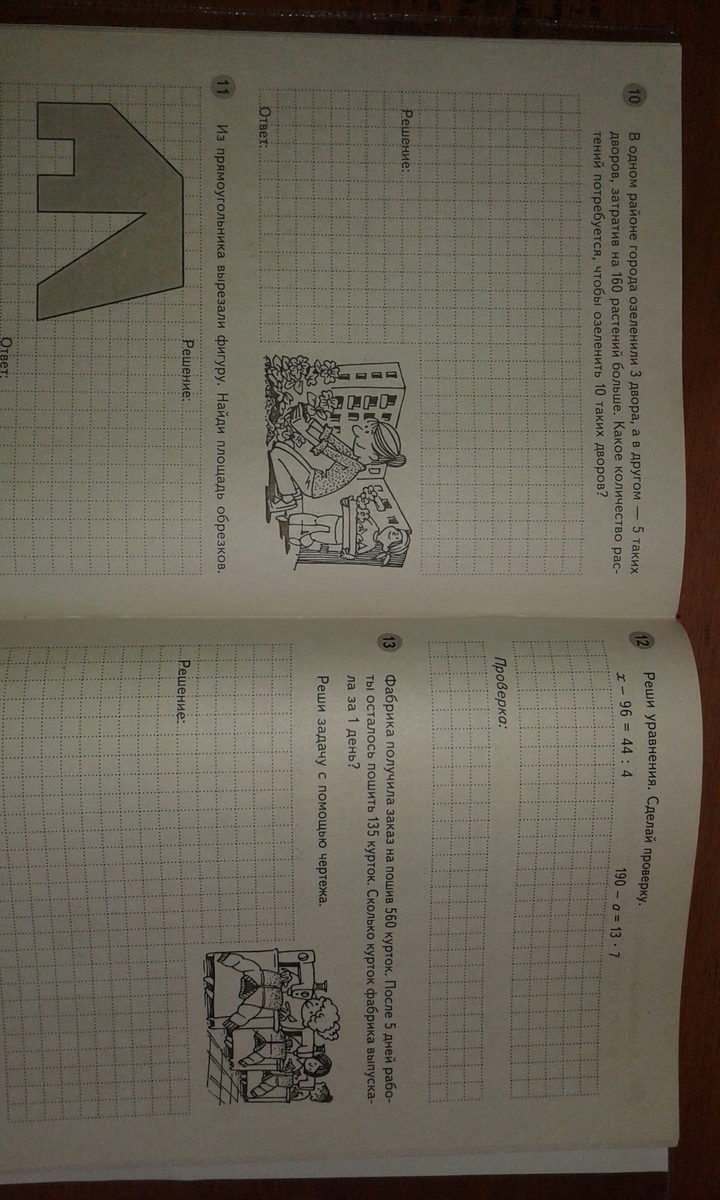 10 В одном районе города озеленили 3 двора, а в другом — 5 таких
дворов, затратив на 160 растений больше. Какое количество рас-
тений потребуется, чтобы озеленить 10 таких дворов?
Решение:
Ответ:
11 Из прямоугольника вырезали фигуру. Найди площадь обрезков.
Решение:
Ответ:
12 Реши уравнения. Сделай проверку.
x − 96 = 44 : 4 190 − a = 13 · 7
Проверка:
13 Фабрика получила заказ на пошив 560 курток. После 5 дней рабо-
ты осталось пошить 135 курток. Сколько курток фабрика выпуска-
ла за 1 день?
Реши задачу с помощью чертежа.
Решение: